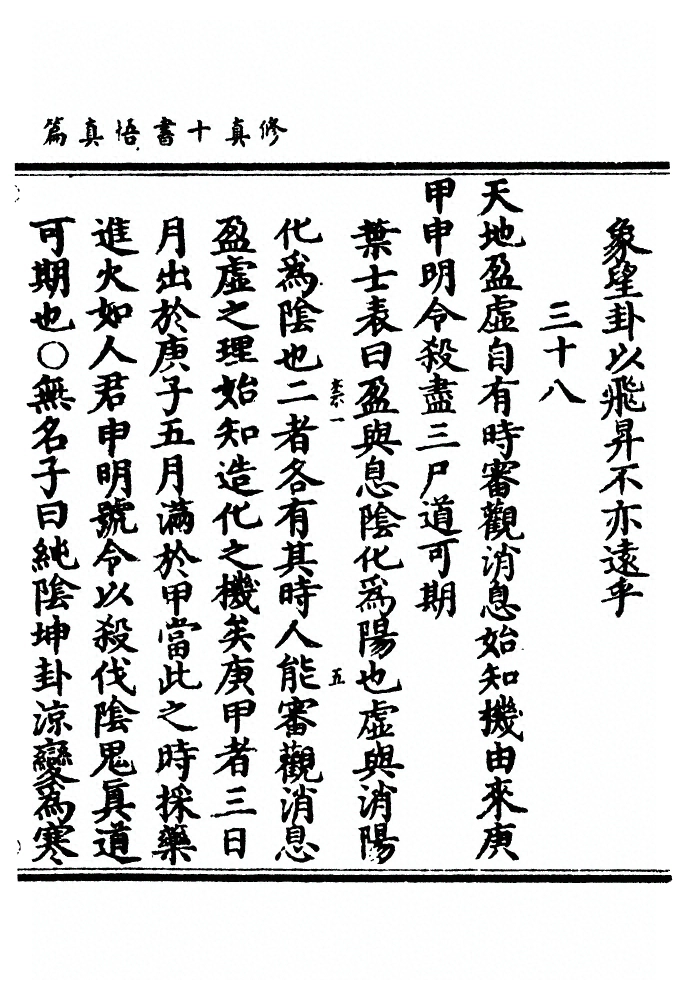 修真十書悟真篇
象望卦以飛昇不亦遠乎
三十八
天地盈虛自有時審觀消息始知機由來庚
甲申明令殺盡三尸道可期
葉士表曰盈與息陰化爲陽也虛與消陽
柰一
五
化爲陰也二者各有其時人能審觀消息
盈虛之理始知造化之機矣庚甲者三日
月出於庚子五月滿於甲當此之時採藥
進火如人君申明號令以殺伐陰鬼眞道
可期也○無名子曰純陰坤卦涼變爲寒